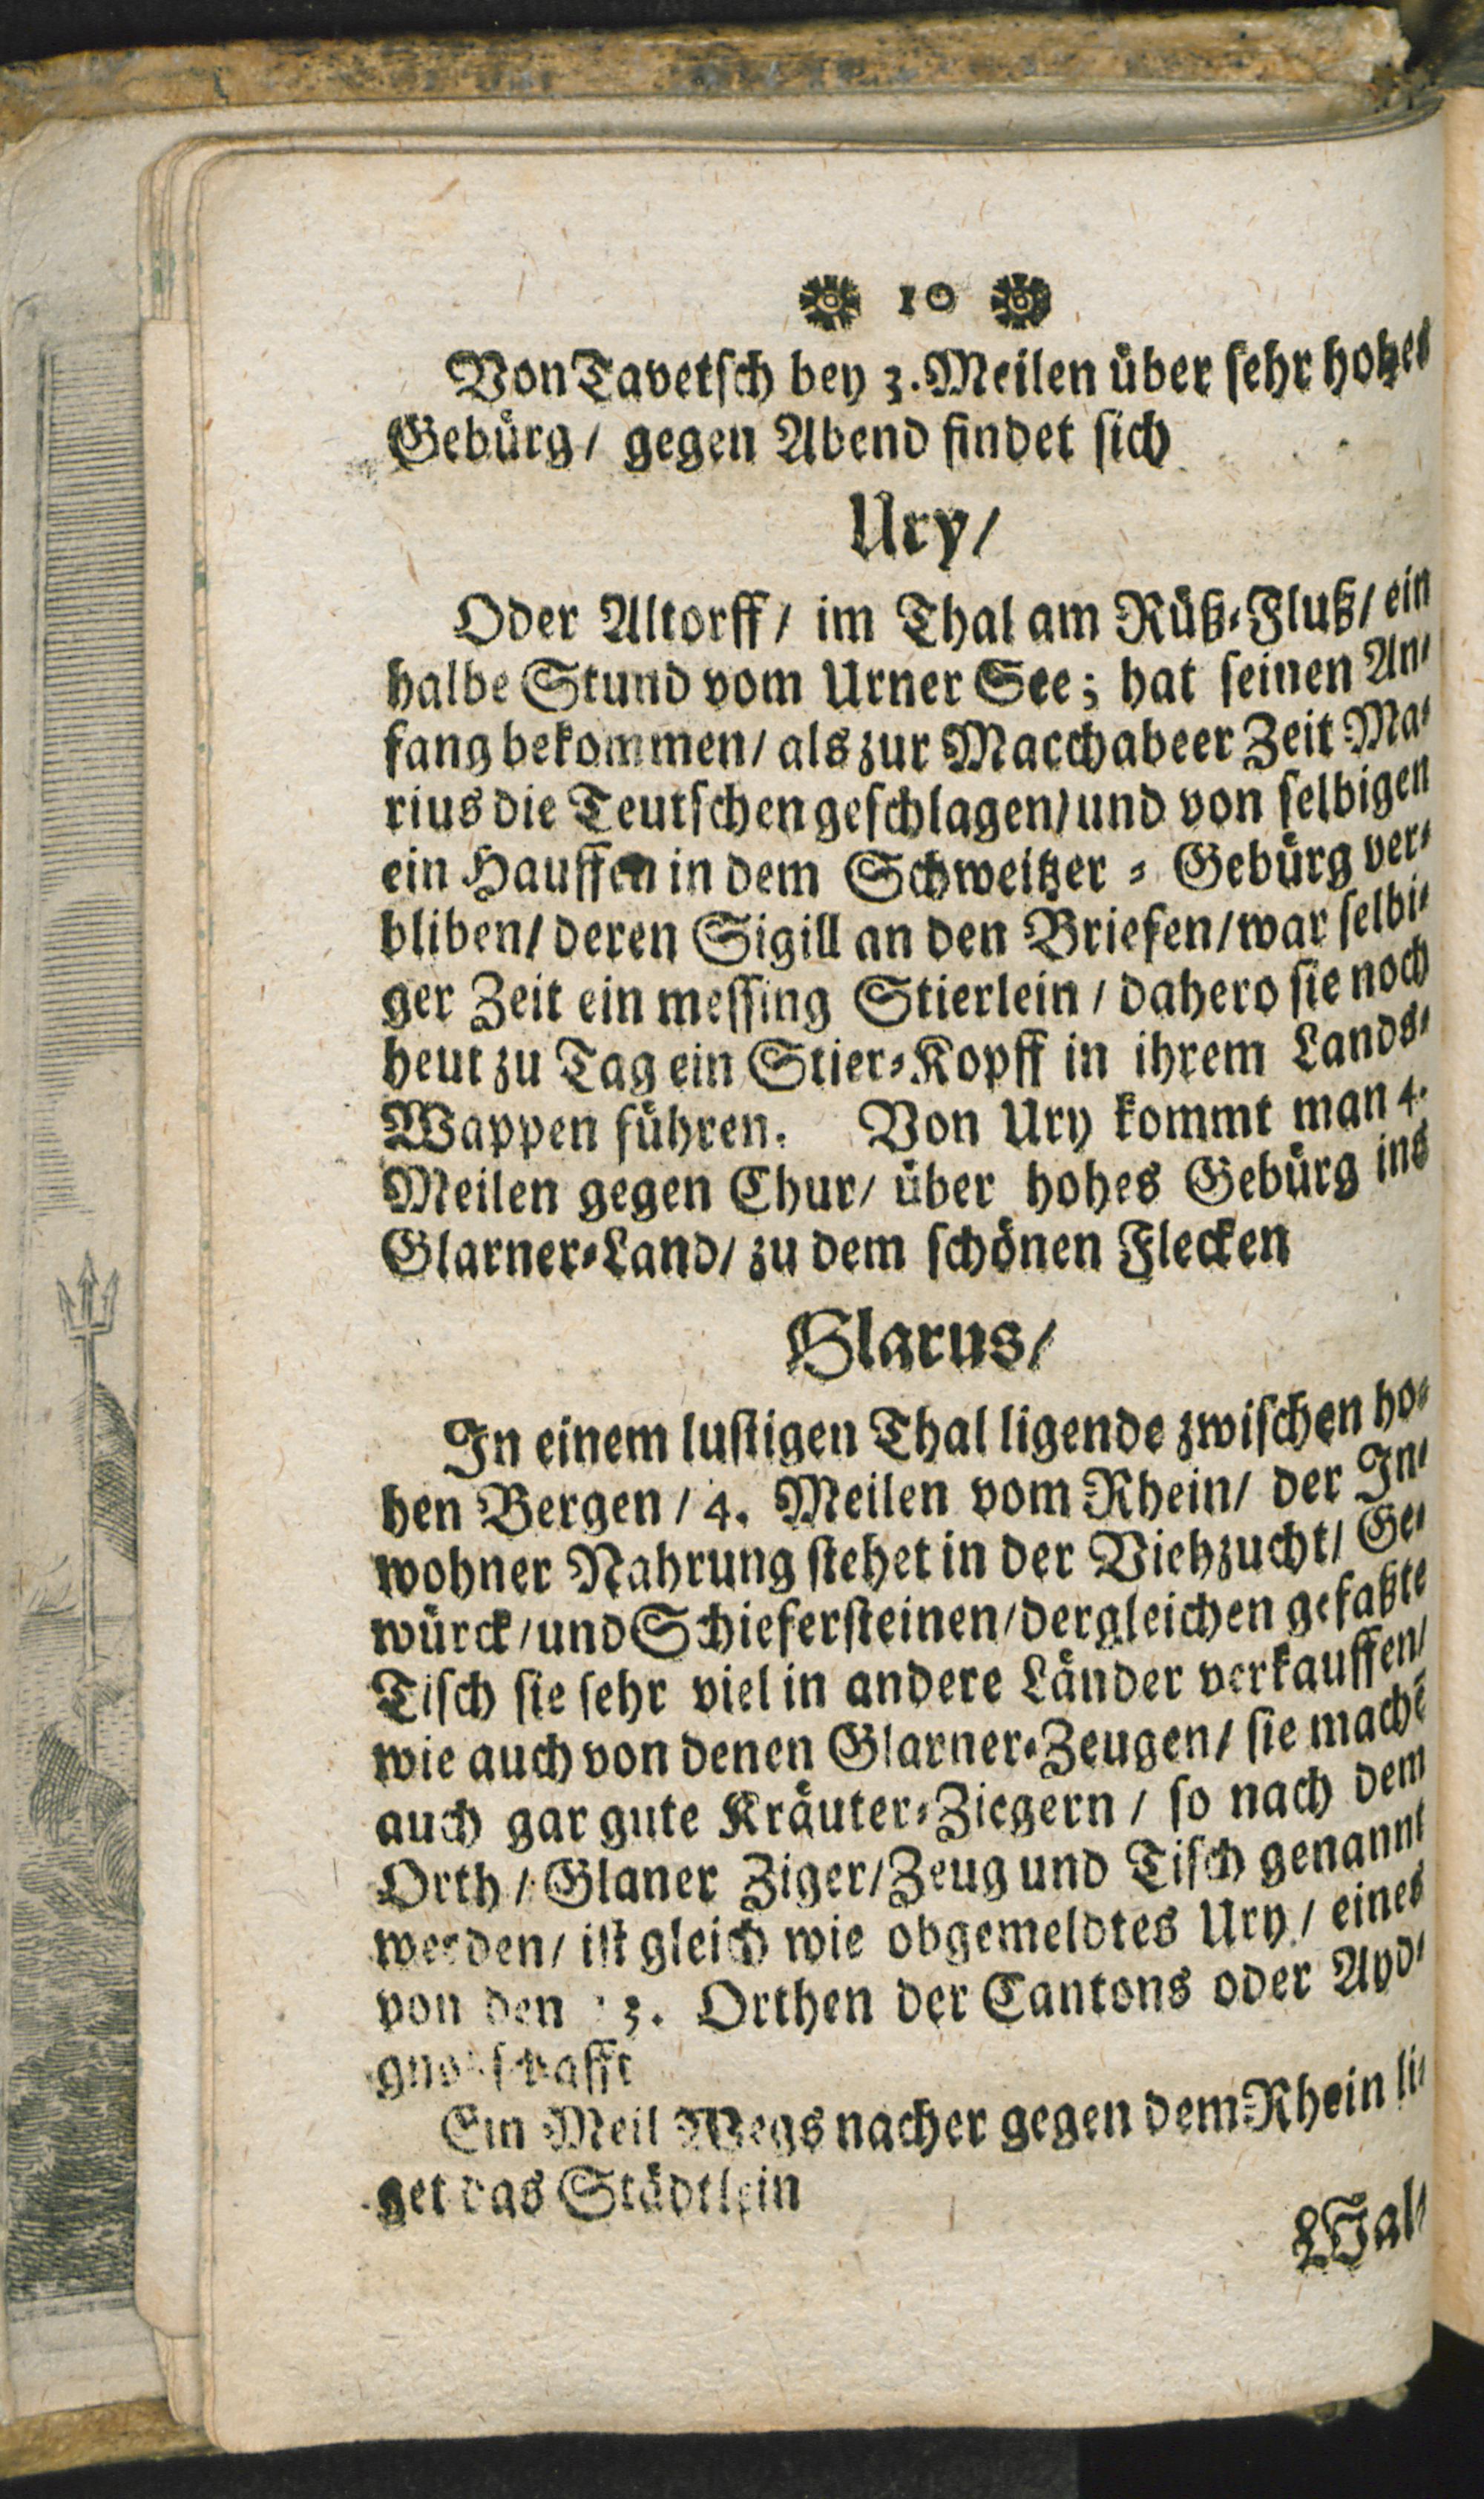 10
Von Tavetsch bey 3. Meilen über sehr hohes
Gebürg/ gegen Abend findet sich
Ury/
Oder Altorff/ im Thal am Rüß-Fluß/ ein
halbe Stund vom Urner See; hat seinen An-
fang bekommen/ als zur Macchabeer Zeit Ma-
rius die Teutschen geschlagen/ und von selbigen
ein Hauffen in dem Schweitzer-Gebürg ver-
bliben/ deren Sigill an den Briefen/ war selbi-
ger Zeit ein messing Stierlein/ dahero sie noch
heut zu Tag ein Stier-Kopff in ihrem Lands-
Wappen führen. Von Ury kommt man 4.
Meilen gegen Chur/ über hohes Gebürg ins
Glarner-Land/ zu dem schönen Flecken
Glarus/
In einem lustigen Thal ligende zwischen ho-
hen Bergen/ 4. Meilen vom Rhein/ der In-
wohner Nahrung stehet in der Viehzucht/ Ge-
würck/ und Schiefersteinen/ dergleichen gefaßte
Tisch sie sehr viel in andere Länder verkauffen/
wie auch von denen Glarner-Zeugen/ sie machē
auch gar gute Kräuter-Ziegern/ so nach dem
Orth/ Glaner Ziger/ Zeug und Tisch genannt
werden/ ist gleich wie obgemeldtes Ury/ eines
von den 3. Orthen der Cantons oder Ayd-
Ein Meil Wegs nacher gegen dem Rhein li-
get das Städtlein
Wal-